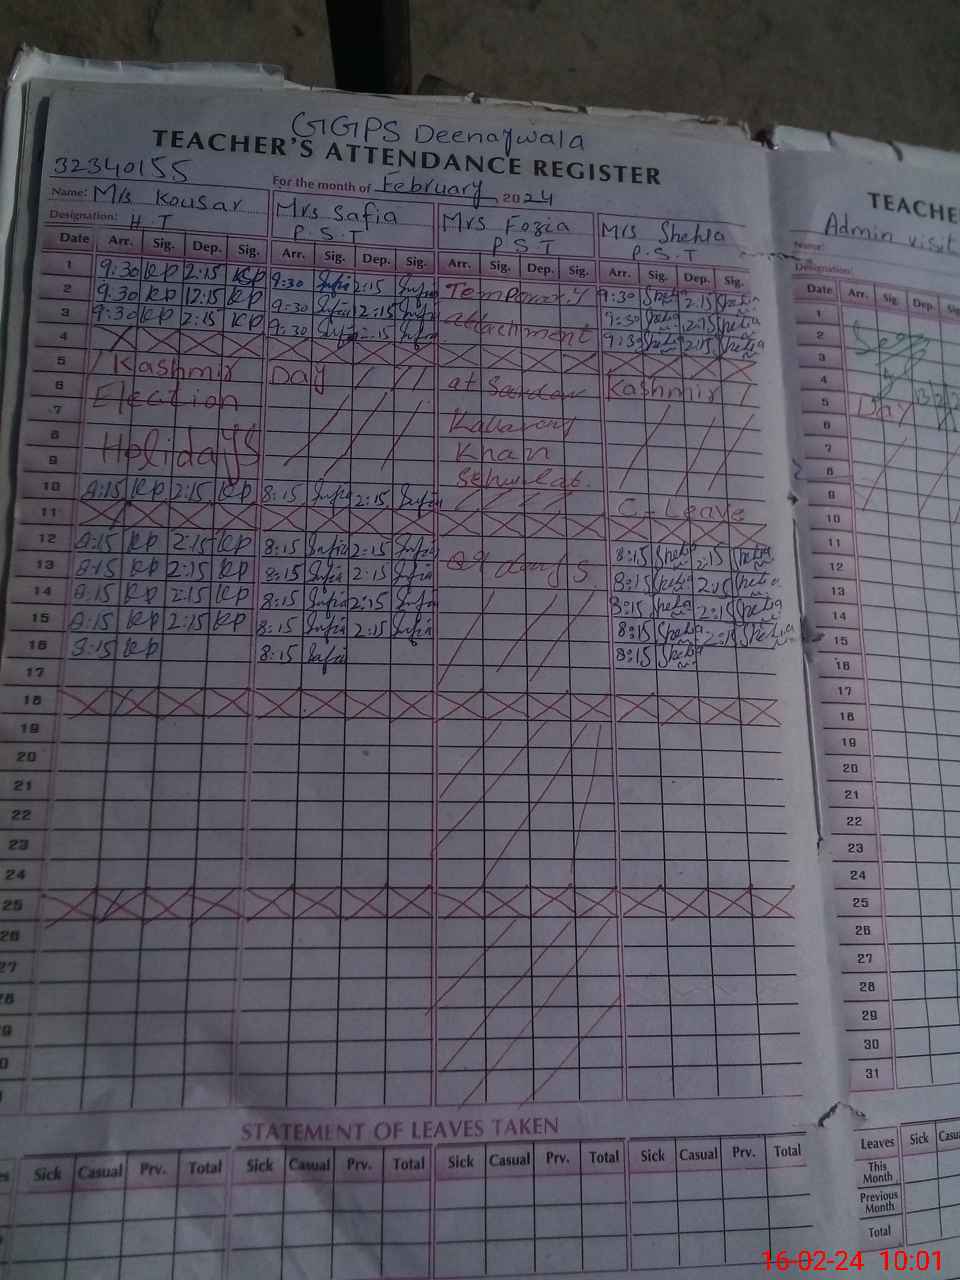 GGPS Deenarwala
TEACHER'S ATTENDANCE REGISTER
32340155
For the month of February 2024
Name: M/s Kousar Mrs Safia Mrs Fozia M/s Shehla
Designation: H.T P.S.T P.S.T P.S.T
Date Arr. Sig. Dep. Sig. Arr. Sig. Dep. Sig. Arr. Sig. Dep. Sig. Arr. Sig. Dep. Sig.
1 9:30 KP 2:15 KP 9:30 Safia 2:15 Safia Temporary 9:30 Shehla 2:15 Shehla
2 9:30 KP 12:15 KP 9:30 Safia 2:15 Safia attachment 9:30 Shehla 2:15 Shehla
3 9:30 KP 2:15 KP 9:30 Safia 2:15 Safia 9:30 Shehla 2:15 Shehla
4
5 Kashmir Day at Kashmir
6 Election
7
8 Holidays Khan
9
10 8:15 KP 2:15 KP 8:15 Safia 2:15 Safia C-Leave
11
12 8:15 KP 2:15 KP 8:15 Safia 2:15 Safia days 8:15 Shehla 2:15 Shehla
13 8:15 KP 2:15 KP 8:15 Safia 2:15 Safia 8:15 Shehla 2:15 Shehla
14 8:15 KP 2:15 KP 8:15 Safia 2:15 Safia 8:15 Shehla 2:15 Shehla
15 8:15 KP 2:15 KP 8:15 Safia 2:15 Safia 8:15 Shehla 2:15 Shehla
16 8:15 KP 8:15 Safia 8:15 Shehla
17
18
19
20
21
22
23
24
25
26
27
28
9
0
STATEMENT OF LEAVES TAKEN
Sick Casual Prv. Total Sick Casual Prv. Total Sick Casual Prv. Total Sick Casual Prv. Total
TEACHE
Admin visit
Name:
Designation:
Date Arr. Sig. Dep.
1
2
3
4
5 Day
6
7
8
9
10
11
12
13
14
15
16
17
18
19
20
21
22
23
24
25
26
27
28
29
30
31
Leaves Sick Casu
This Month
Previous Month
Total
16-02-24 10:01